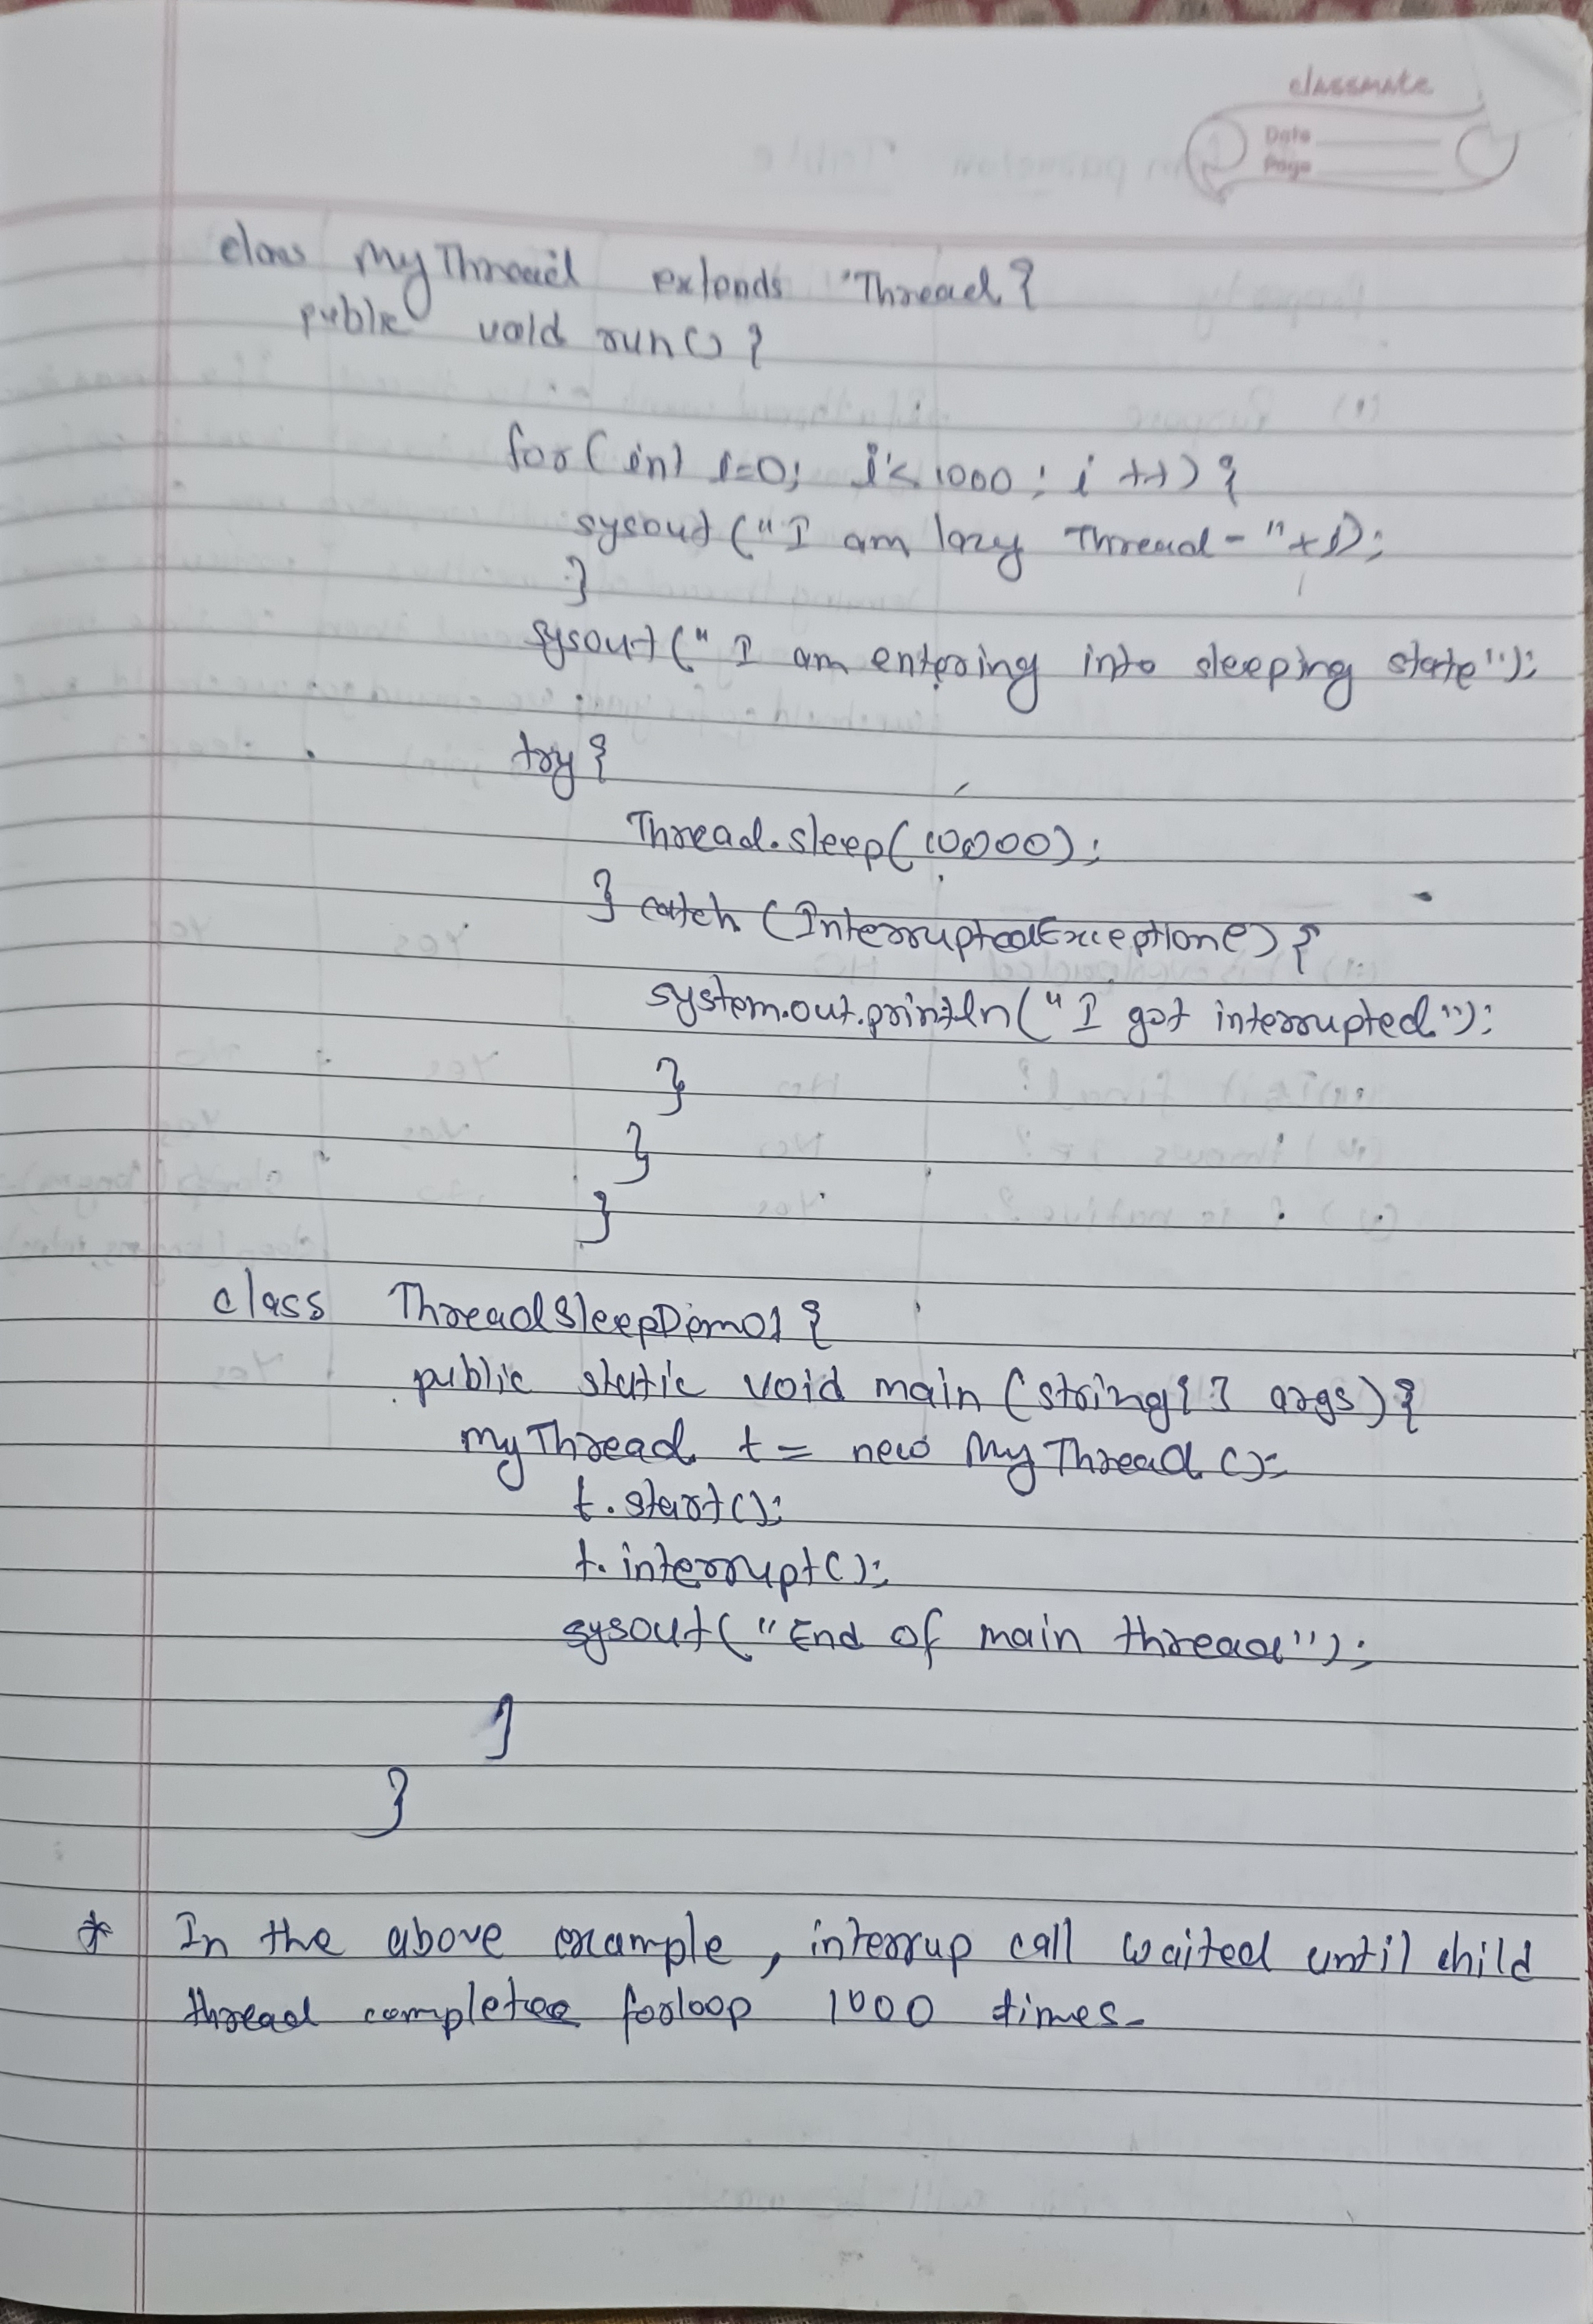 classmate
Date
Page
class MyThread extends Thread{
public void run(){
for(int i=0; i<1000; i++){
sysout("I am lazy Thread-"+i);
}
sysout("I am entering into sleeping state");
try{
Thread.sleep(10000);
} catch (InterruptedException e) {
system.out.println("I got interrupted");
}
}
}
class ThreadSleepDemo1{
public static void main (string[] args){
myThread t = new MyThread();
t.start();
t.interrupt();
sysout("End of main thread");
}
}
* In the above example, interrup call waited until child
thread completee forloop 1000 times.